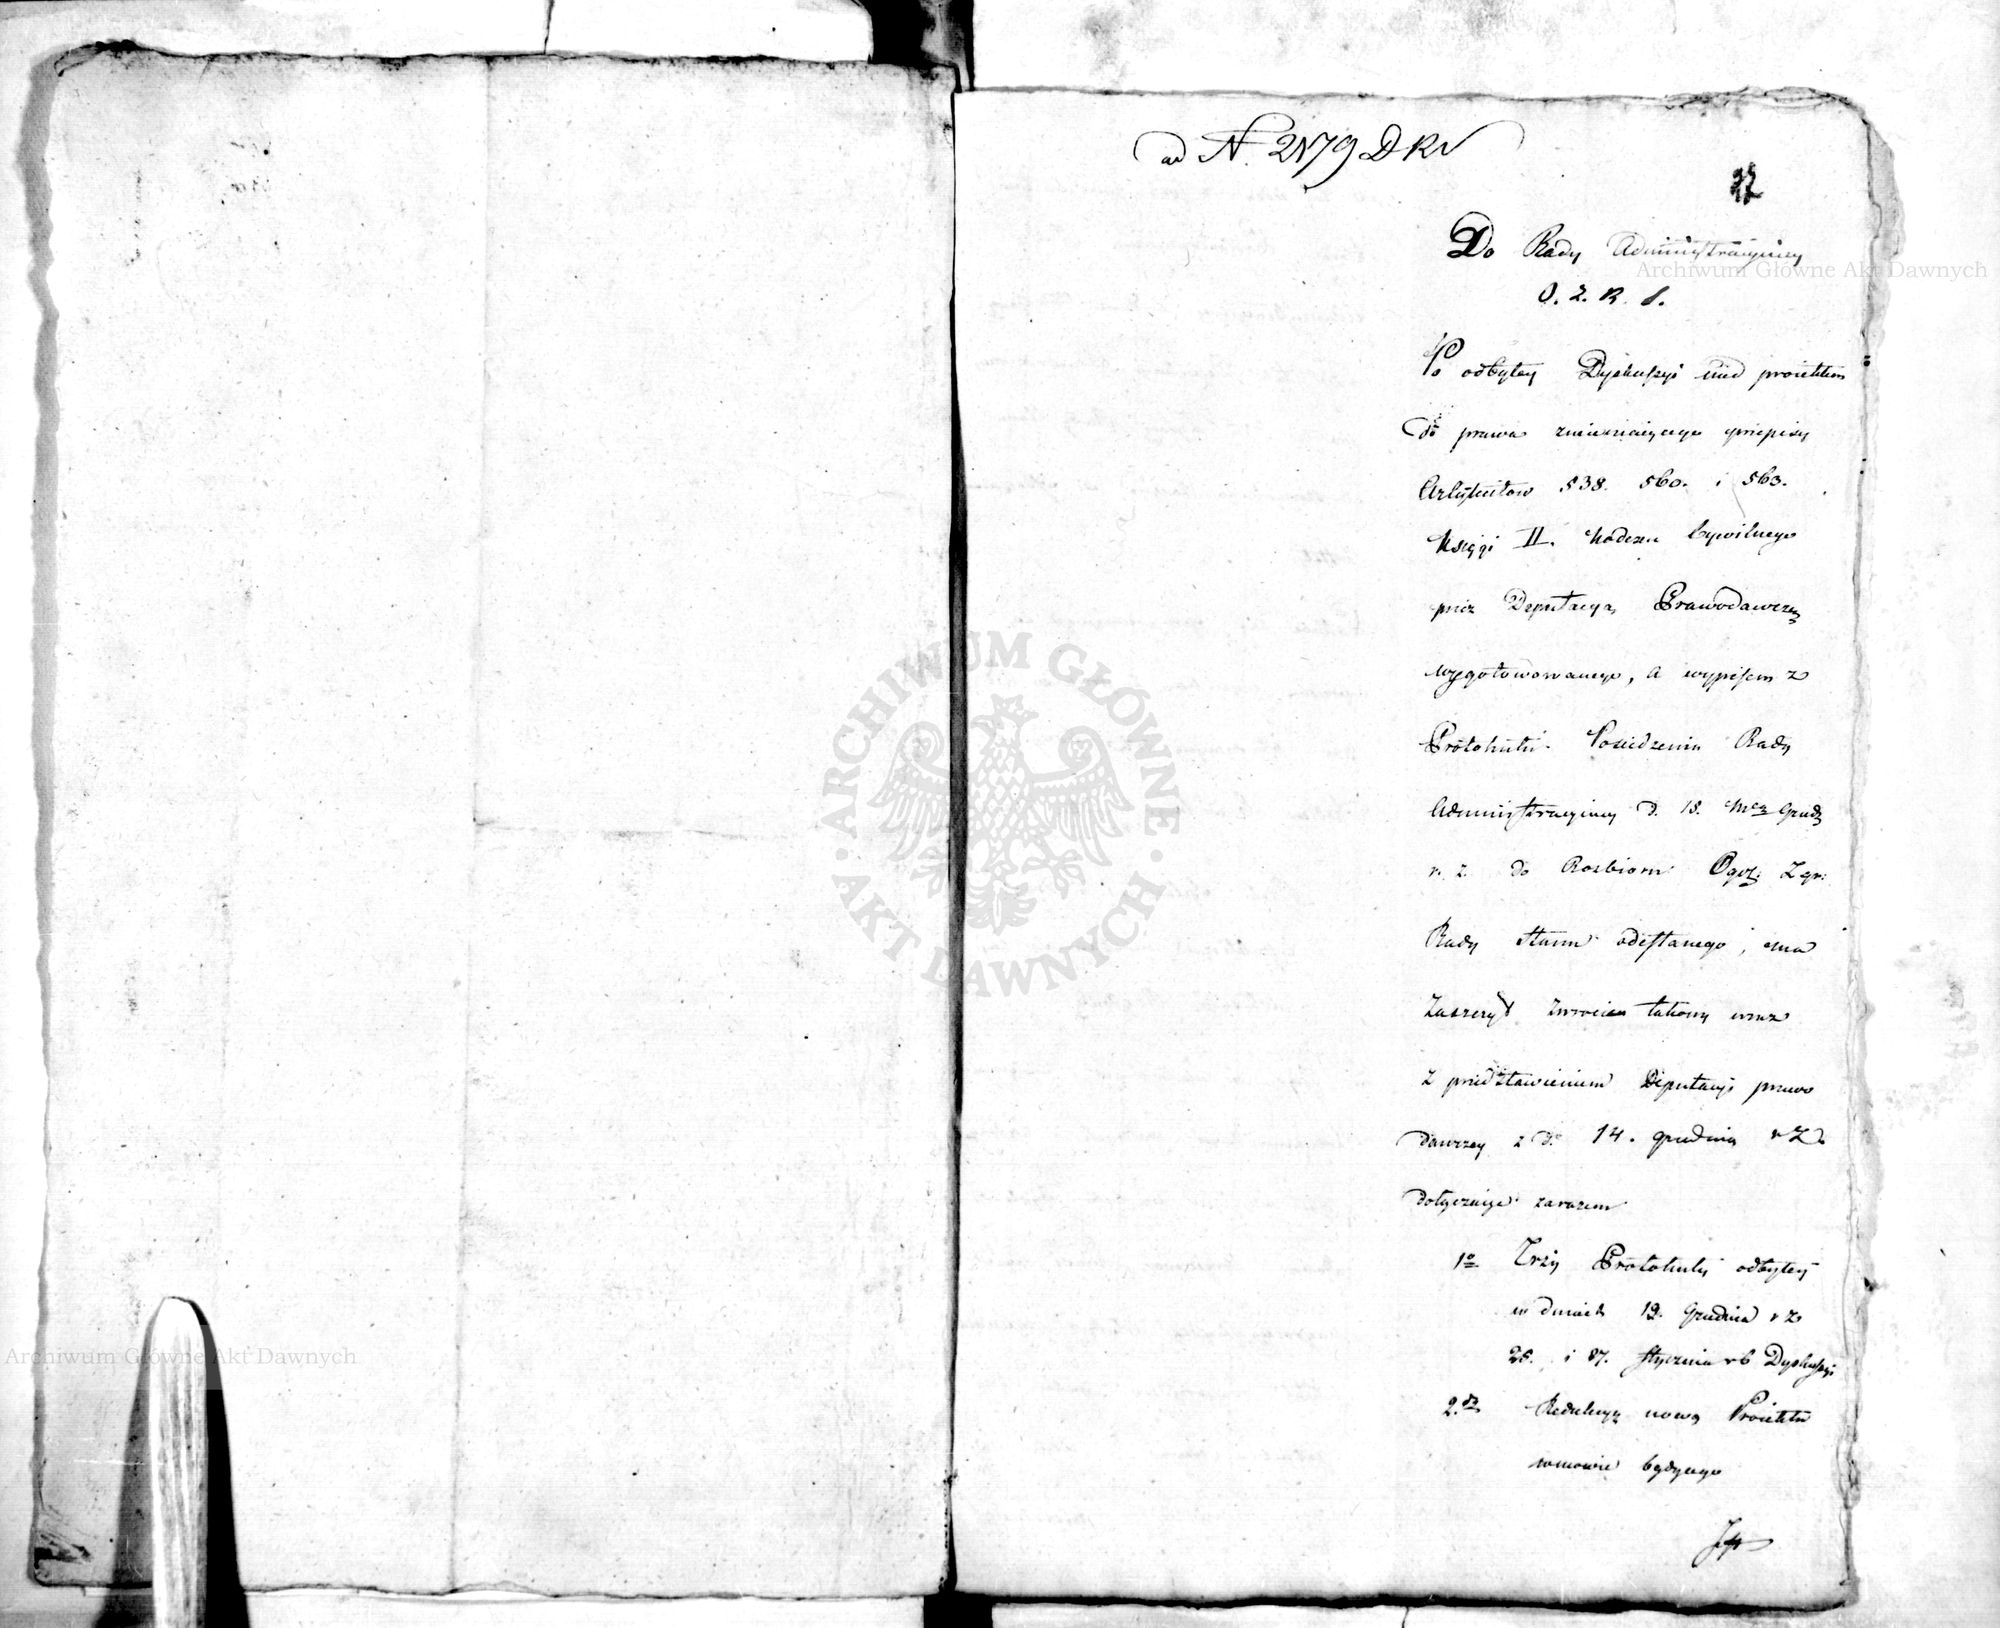 ad N. 2179 D K
Do Rady Administracyiney
O. Z. R. S.
Po odbytey Dyskussyi nad proiektem
do prawa zmieniaiącego przepisy
Artykułów 538. 560. i 563.
Księgi II. Kodexu Cywilnego
przez Deputacyą Prawodawczą
wygotowowanego, a wypisem z
Protokułu Posiedzenia Rady
Administracyiney d. 18. Mca Grud
r. z. do Rozbioru Ogól: Zgr:
Rady Stanu odesłanego, ma
Zaszczyt zwrócić takowy wraz
z przedstawieniem Deputacyi prawo
dawczey z d. 14. grudnia r Z
dołączaiąc zarazem
1o Trzy Protokuły odbytey
w dniach 19. Grudnia r z
i 27. Stycznia r b Dyskussyi
2. Redakcyą nową Proiektu
w mowie będącego
Archiwum Główne Akt Dawnych
Archiwum Główne Akt Dawnych
ARCHIWUM GŁÓWNE AKT DAWNYCH